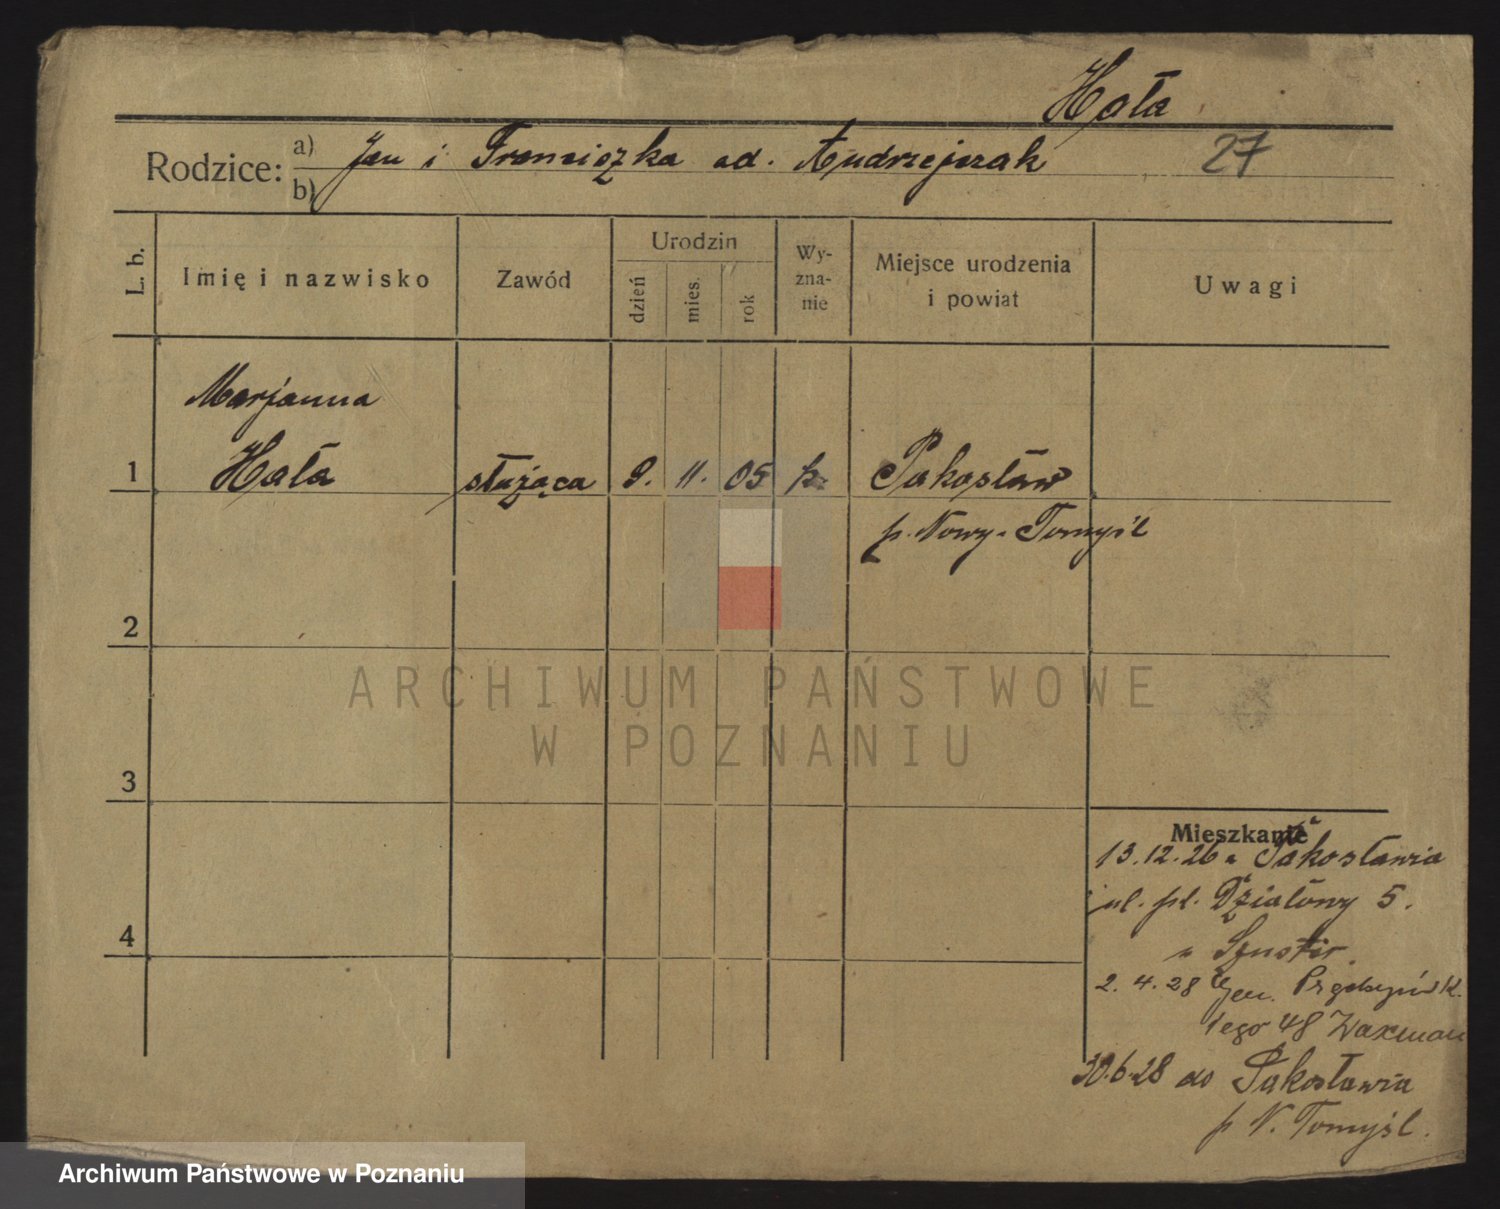 Hała
Rodzice: a) Jan i Franciszka od. Andrzejczak 27
b)
L. b.
Imię i nazwisko
Zawód
Urodzin
dzień
mies.
rok
Wy-
zna-
nie
Miejsce urodzenia
i powiat
Uwagi
Marjanna
1 Hała służąca 9. 11. 05 k. Pakosław
p. Nowy-Tomyśl
2
3
4
ARCHIWUM PAŃSTWOWE
W POZNANIU
Mieszkanie
13.12.26 z Pakosławia
ul. pl. Działowy 5.
2.4.28 Jen. Prądzyńsk.
iego 48
30.6.28 do Pakosławia
p N. Tomyśl.
Archiwum Państwowe w Poznaniu